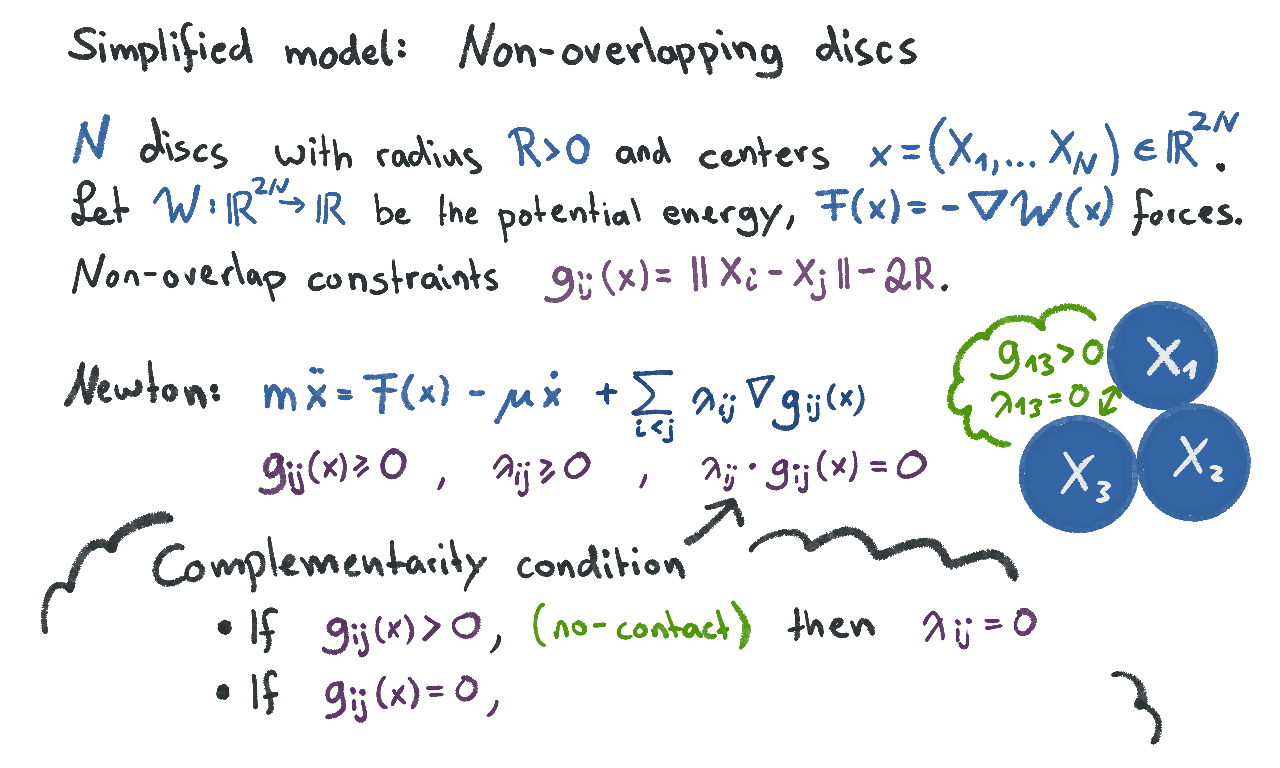 Simplified model: Non-overlapping discs
N discs with radius R>0 and centers x = (X₁,... X_N) ∈ ℝ²ᴺ.
Let W : ℝ²ᴺ → ℝ be the potential energy, F(x) = - ∇W(x) forces.
Non-overlap constraints g_ij(x) = ‖X_i - X_j‖ - 2R.
Newton: mẍ = F(x) - μẋ + ∑_{i<j} λ_ij ∇g_ij(x)
g_ij(x) ≥ 0 , λ_ij ≥ 0 , λ_ij · g_ij(x) = 0
g₁₃ > 0
λ₁₃ = 0
X₁
X₃
X₂
Complementarity condition
• If g_ij(x) > 0, (no-contact) then λ_ij = 0
• If g_ij(x) = 0,